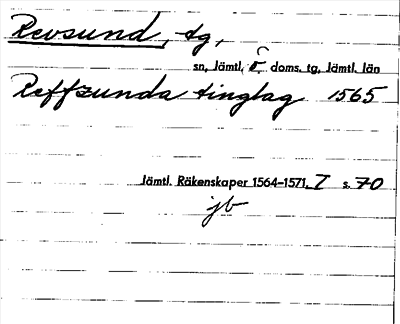 Revsund, tg,
sn, Jämtl, doms. tg, Jämtl. län
Reffzunda tinglag 1565
Jämtl. Räkenskaper 1564-1571, I s. 70
jb